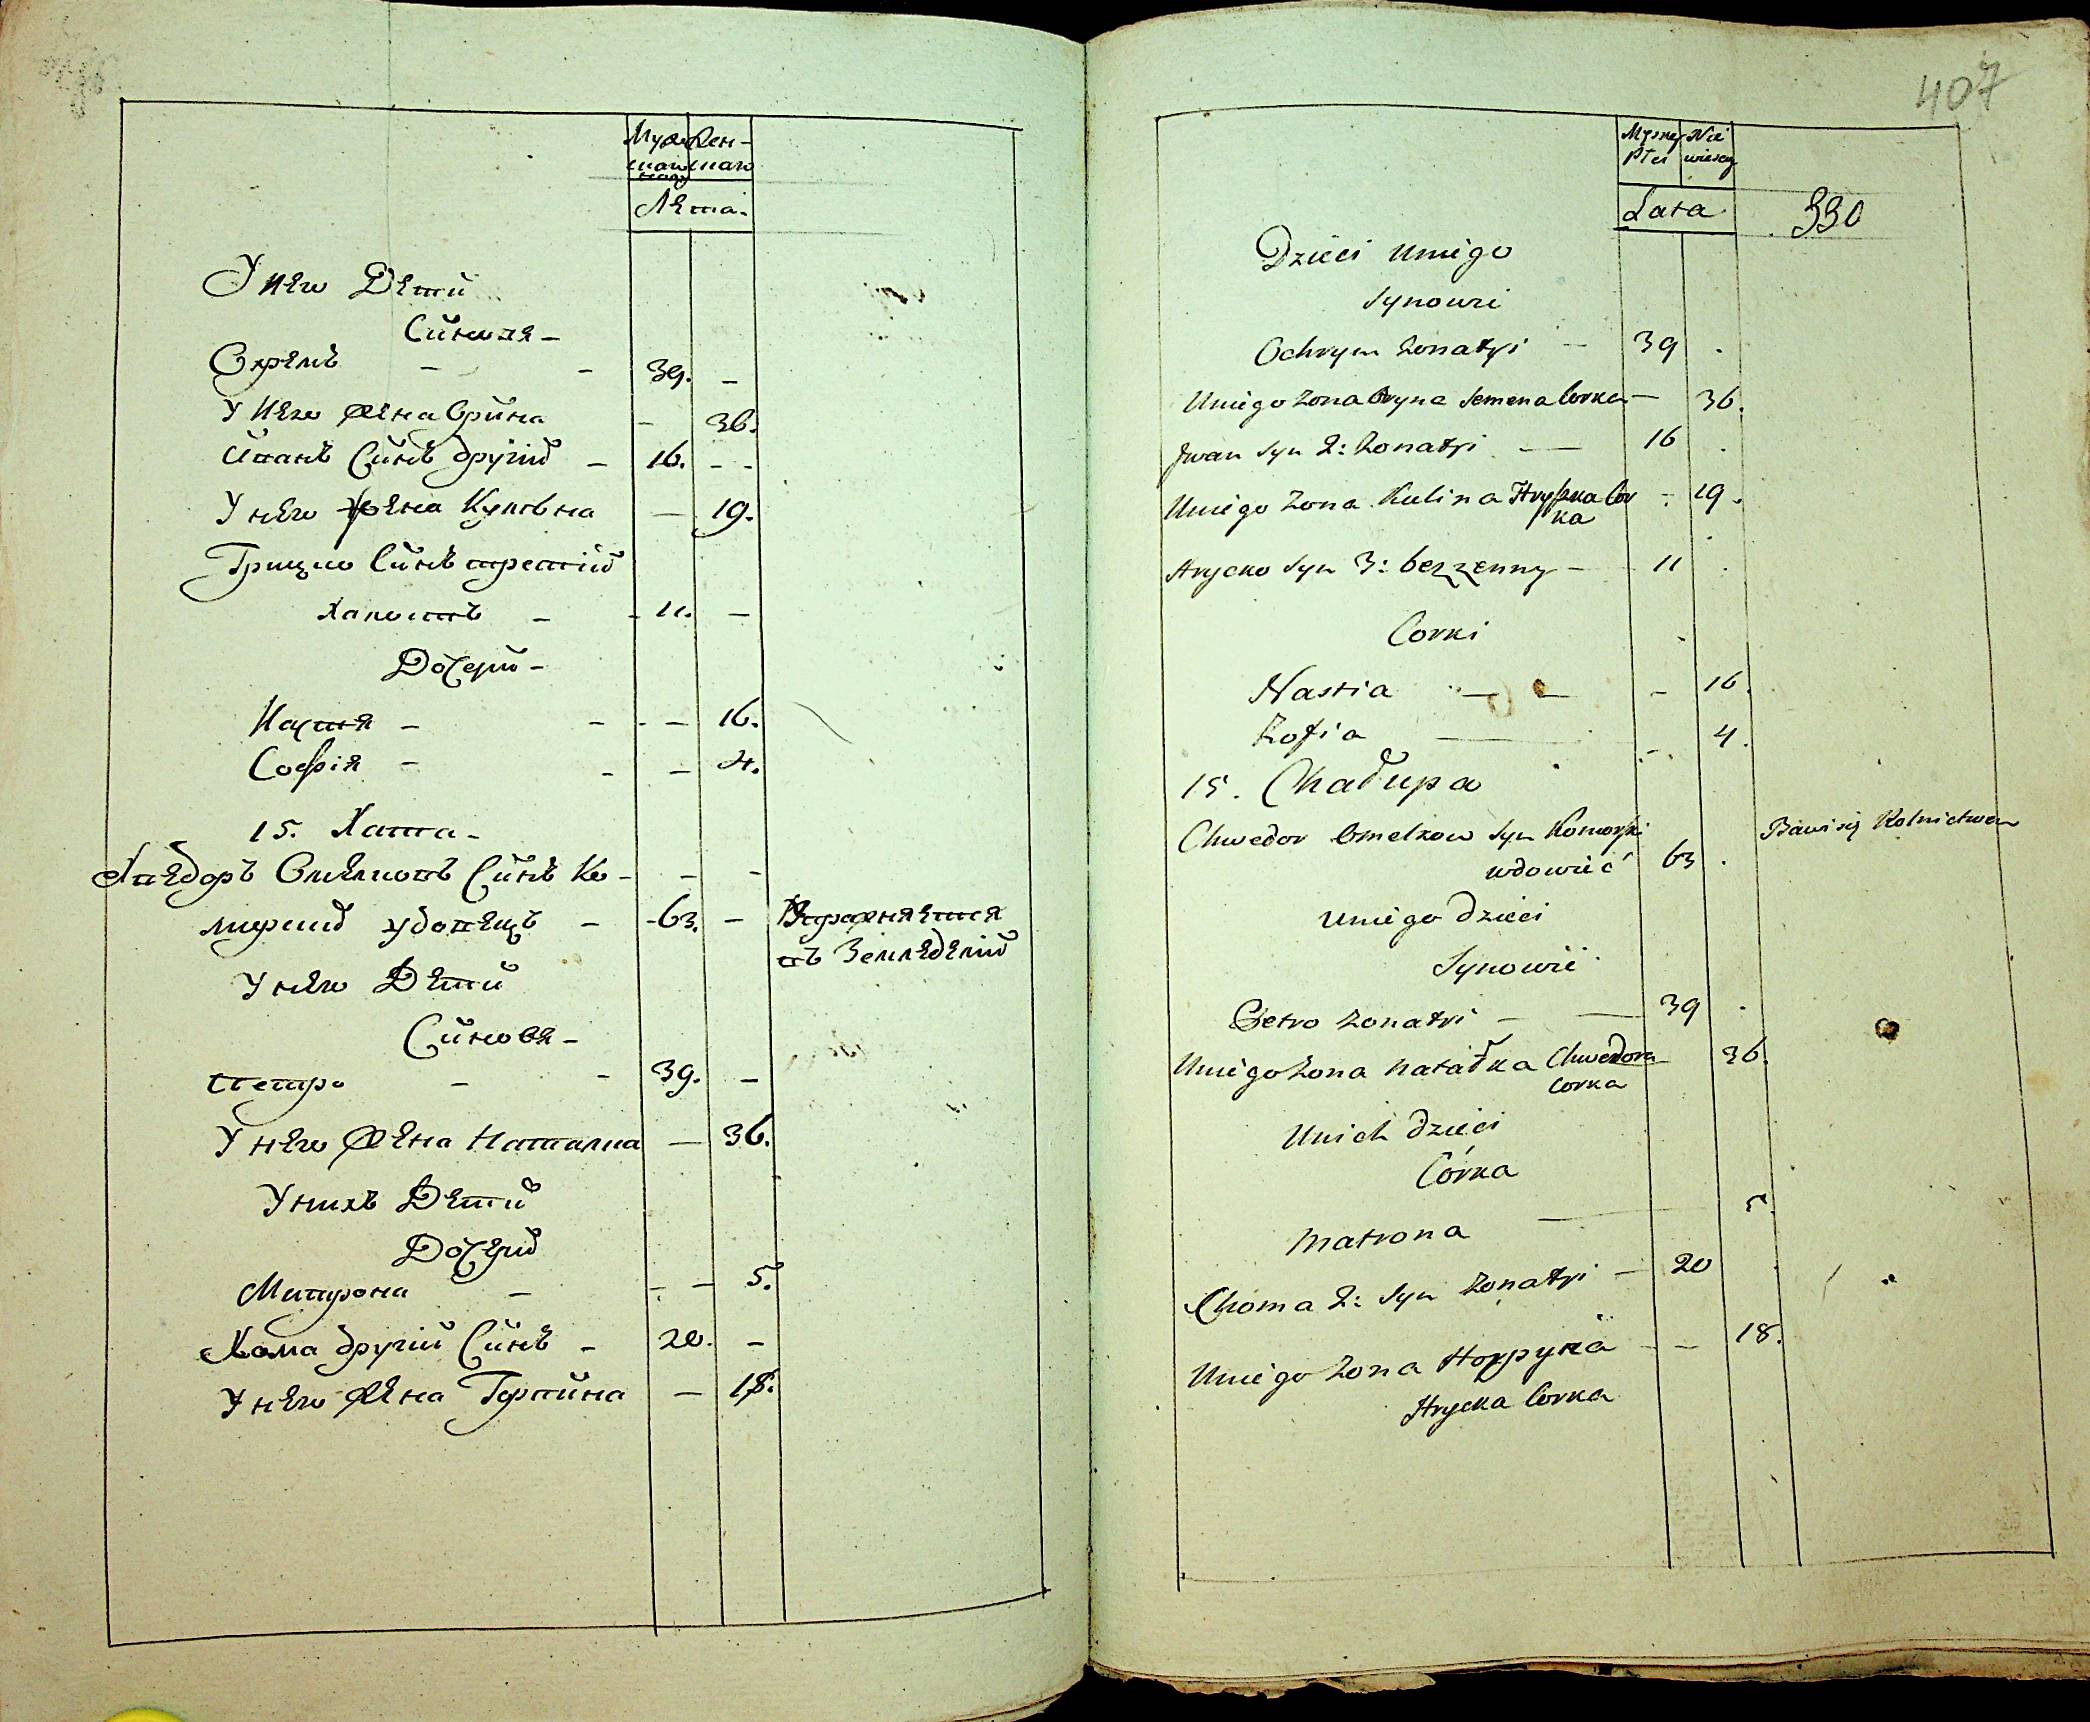 Муже Жен-
скаго скаго
Лета.
У него Дети
Синовя –
Охремъ – – 39. –
У Него Жена Орина – 36.
Иванъ Синъ другій – 16. –
У него жена Кулина – 19.
Грицко Синъ третій
Холостъ – 11. –
Дочери –
Настя – – 16.
Софія – – 4.
15. Хата –
Хведоръ Омелковъ Синъ Ко – – –
морний удовецъ – 63. – Упражняется
въ Земледелій
У него Дети
Синовя –
Петро – – 39. –
У него Жена Наталка – 36.
У нихъ Дети
Дочери
Матрона – – 5.
Хома другій Синъ – 20. –
У него Жена Горпина – 18.
407
Męzkey Nie
płci wiescey
Lata 330
Dzieci Uniego
Synowie
Ochrym Zonatyi – 39 .
Uniego Zona Oryna Semena Corka – 36.
Jwan Syn 2: Zonatyi – 16 .
Uniego Zona Kulina Hryszka Cor – 19.
ka
Hrycko Syn 3: bezzenny – 11 .
Corki
Nastia – – 16.
Zofia – 4.
15. Chałupa
Chwedor Omelkow Syn Komorski Bawi się Rolnictwem
wdowieć 63 .
Uniego dzieci
Synowie
Petro Zonatyi – 39 .
Uniego Zona Natałka Chwedora 36.
Corka
Unich dzieci
Córka
Matrona – 5.
Choma 2: Syn Zonatyi – 20 .
Uniego Zona Horpyna – – 18.
Hrycka Corka